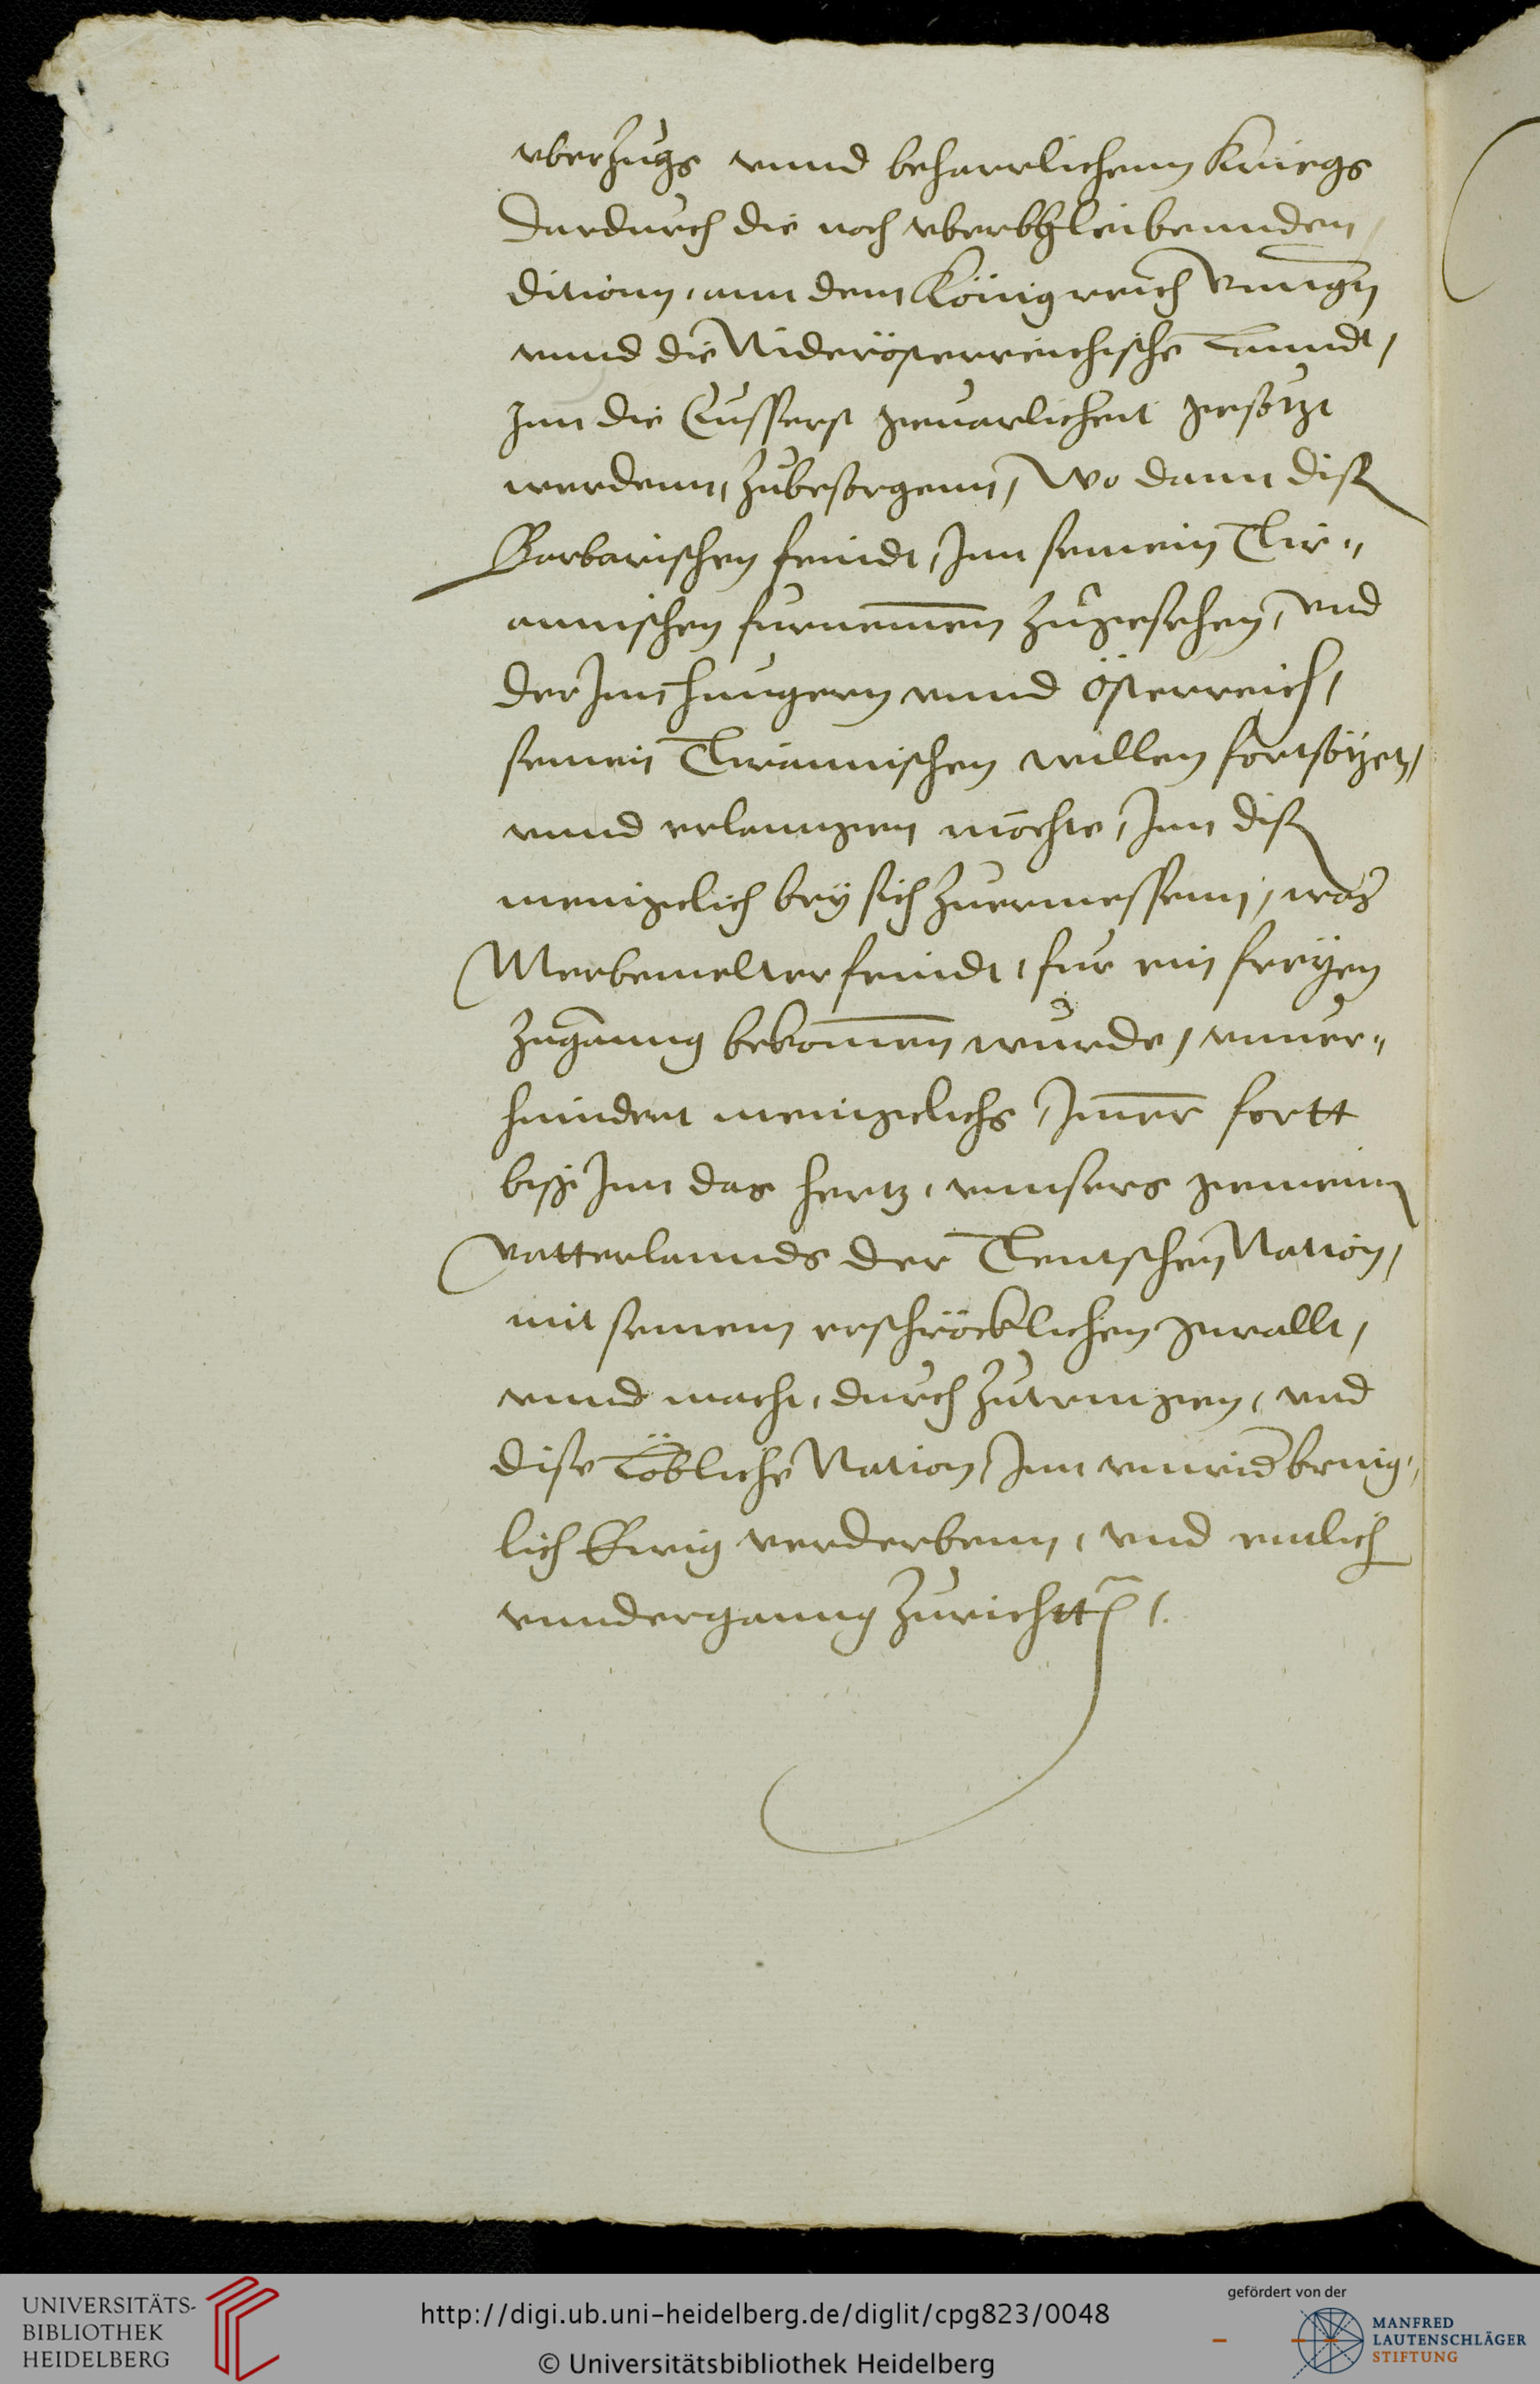 vberzugs vnnd beharrlichenn Kriegs
Dardurch die noch vberbleibennden
ditionn, ann dem Königreich Vnngern
vnnd die Niderösterreichische Lanndt,
Jnn die Eusserst geuarlicheit gesötzt
werdenn, zubesorgenn, Wo dann disem
Barbarischen feindt, Jnn seinem Tir„
annischen furnemen zugesehen, vnd
der Jnn Hungern vnnd Österreich,
seinen Tirannischen willen fortsötzen,
vnnd erlanngen möchte, Jnn disem
menigclich bey sich zuermessenn, was
Merbemelter feindt, fur ein freyen
zuganng bekomen wurde, vnuer„
hindert menigclichs, Jmer fortt
biss Jnn das hertz, vnnsers gemeinen
Vatterlannds der Teutschen Nation,
mit seinem erschröcklichen gwallt,
vnnd macht, durch zutringen, vnd
dise Löbliche Nation, Jnn vnwiderbring„
lich Ewig verderbenn, vnd entlich
vnnderganng zurichtten /.
UNIVERSITÄTS-
BIBLIOTHEK
HEIDELBERG
http://digi.ub.uni-heidelberg.de/diglit/cpg823/0048
© Universitätsbibliothek Heidelberg
gefördert von der
MANFRED
LAUTENSCHLÄGER
STIFTUNG